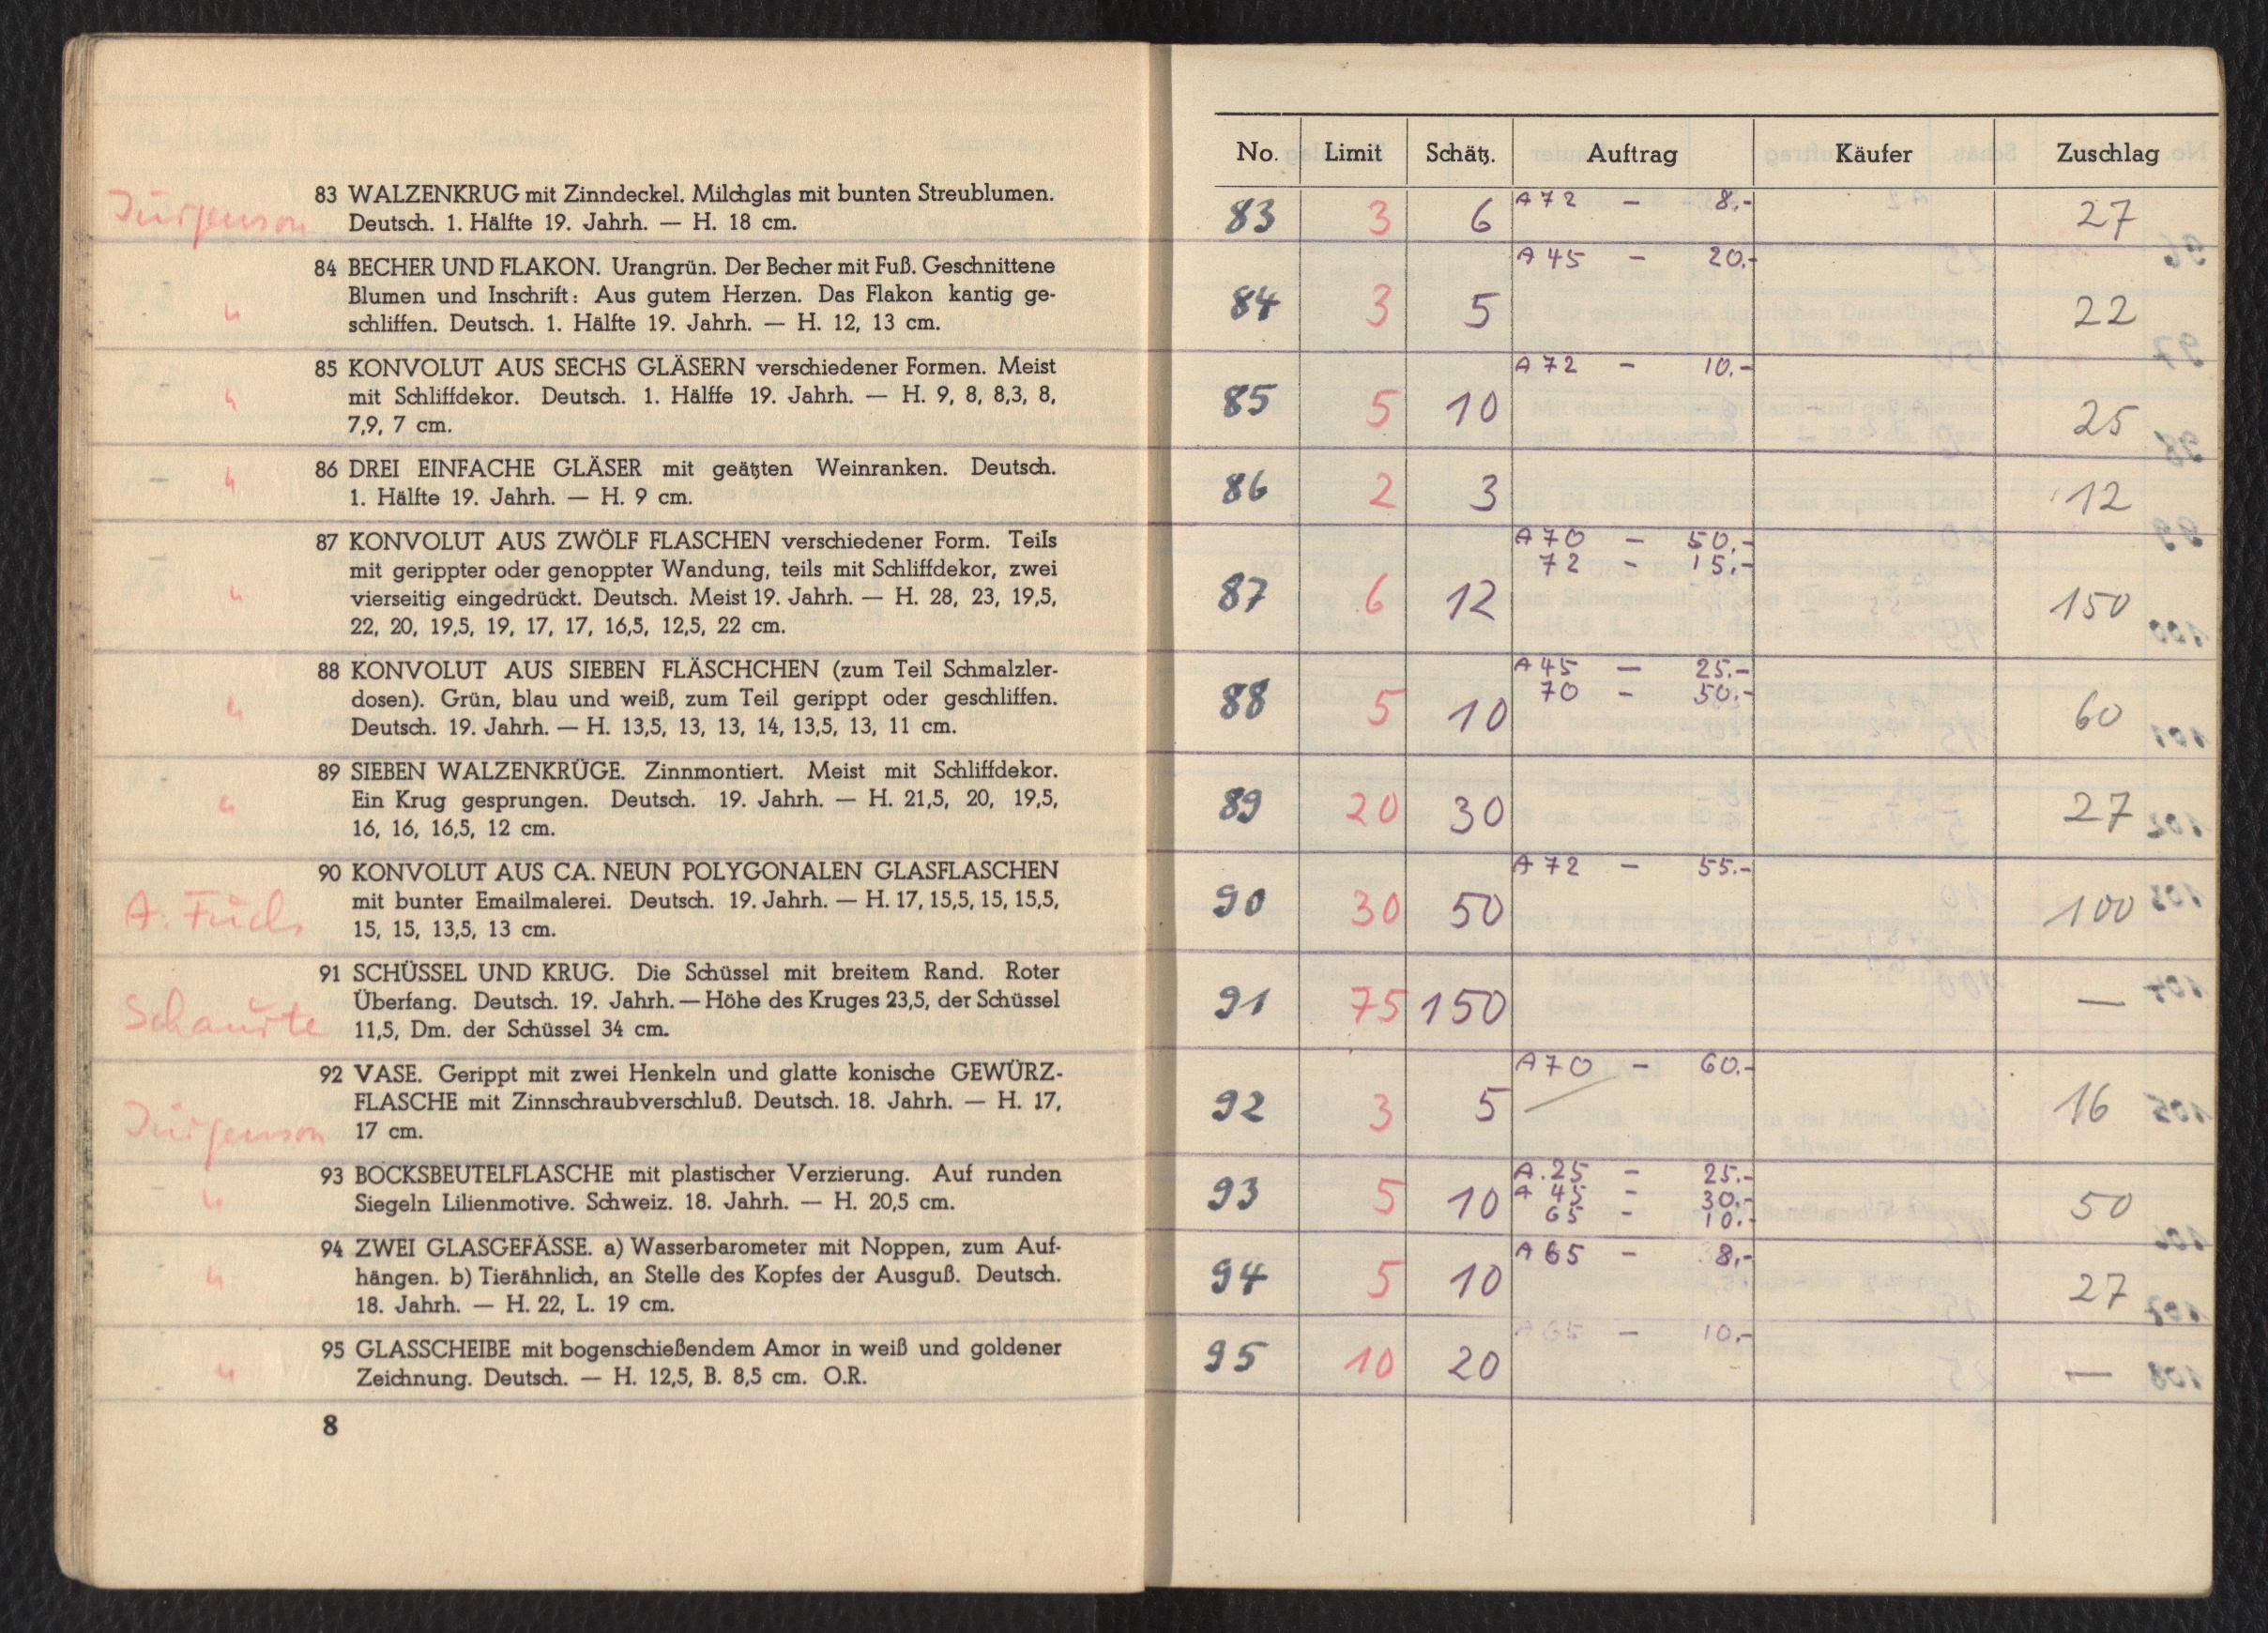 Jürgenson
83 WALZENKRUG mit Zinndeckel. Milchglas mit bunten Streublumen.
Deutsch. 1. Hälfte 19. Jahrh. — H. 18 cm.
84 BECHER UND FLAKON. Urangrün. Der Becher mit Fuß. Geschnittene
Blumen und Inschrift: Aus gutem Herzen. Das Flakon kantig ge-
schliffen. Deutsch. 1. Hälfte 19. Jahrh. — H. 12, 13 cm.
85 KONVOLUT AUS SECHS GLÄSERN verschiedener Formen. Meist
mit Schliffdekor. Deutsch. 1. Hälffe 19. Jahrh. — H. 9, 8, 8,3, 8,
7,9, 7 cm.
86 DREI EINFACHE GLÄSER mit geätzten Weinranken. Deutsch.
1. Hälfte 19. Jahrh. — H. 9 cm.
87 KONVOLUT AUS ZWÖLF FLASCHEN verschiedener Form. Teils
mit gerippter oder genoppter Wandung, teils mit Schliffdekor, zwei
vierseitig eingedrückt. Deutsch. Meist 19. Jahrh. — H. 28, 23, 19,5,
22, 20, 19,5, 19, 17, 17, 16,5, 12,5, 22 cm.
88 KONVOLUT AUS SIEBEN FLÄSCHCHEN (zum Teil Schmalzler-
dosen). Grün, blau und weiß, zum Teil gerippt oder geschliffen.
Deutsch. 19. Jahrh. — H. 13,5, 13, 13, 14, 13,5, 13, 11 cm.
89 SIEBEN WALZENKRÜGE. Zinnmontiert. Meist mit Schliffdekor.
Ein Krug gesprungen. Deutsch. 19. Jahrh. — H. 21,5, 20, 19,5,
16, 16, 16,5, 12 cm.
A. Fuchs
90 KONVOLUT AUS CA. NEUN POLYGONALEN GLASFLASCHEN
mit bunter Emailmalerei. Deutsch. 19. Jahrh. — H. 17, 15,5, 15, 15,5,
15, 15, 13,5, 13 cm.
Schaurte
91 SCHÜSSEL UND KRUG. Die Schüssel mit breitem Rand. Roter
Überfang. Deutsch. 19. Jahrh. — Höhe des Kruges 23,5, der Schüssel
11,5, Dm. der Schüssel 34 cm.
Jürgenson
92 VASE. Gerippt mit zwei Henkeln und glatte konische GEWÜRZ-
FLASCHE mit Zinnschraubverschluß. Deutsch. 18. Jahrh. — H. 17,
17 cm.
93 BOCKSBEUTELFLASCHE mit plastischer Verzierung. Auf runden
Siegeln Lilienmotive. Schweiz. 18. Jahrh. — H. 20,5 cm.
94 ZWEI GLASGEFÄSSE. a) Wasserbarometer mit Noppen, zum Auf-
hängen. b) Tierähnlich, an Stelle des Kopfes der Ausguß. Deutsch.
18. Jahrh. — H. 22, L. 19 cm.
95 GLASSCHEIBE mit bogenschießendem Amor in weiß und goldener
Zeichnung. Deutsch. — H. 12,5, B. 8,5 cm. O.R.
8
No. Limit Schätz. Auftrag Käufer Zuschlag
83 3 6 A 72 — 8.- 27
84 3 5 A 45 — 20.- 22
85 5 10 A 72 — 10.- 25
86 2 3 12
87 6 12 A 70 — 50.- 150
72 - 15.-
88 5 10 A 45 — 25.- 60
70 - 50.-
89 20 30 27
90 30 50 A 72 — 55.- 100
91 75 150 —
92 3 5 A 70 — 60.- 16
93 5 10 A. 25 — 25.- 50
A 45 - 30.-
65 - 10.-
94 5 10 A 65 — 8.- 27
95 10 20 A 65 — 10.- —